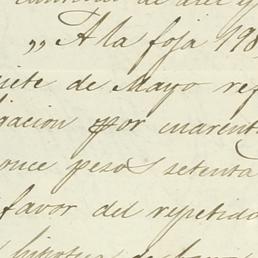 cantidad de diez y
„ A la foja 198
siete de Mayo ref
gacion por cuarent
once pesos setenta
favor del repetido